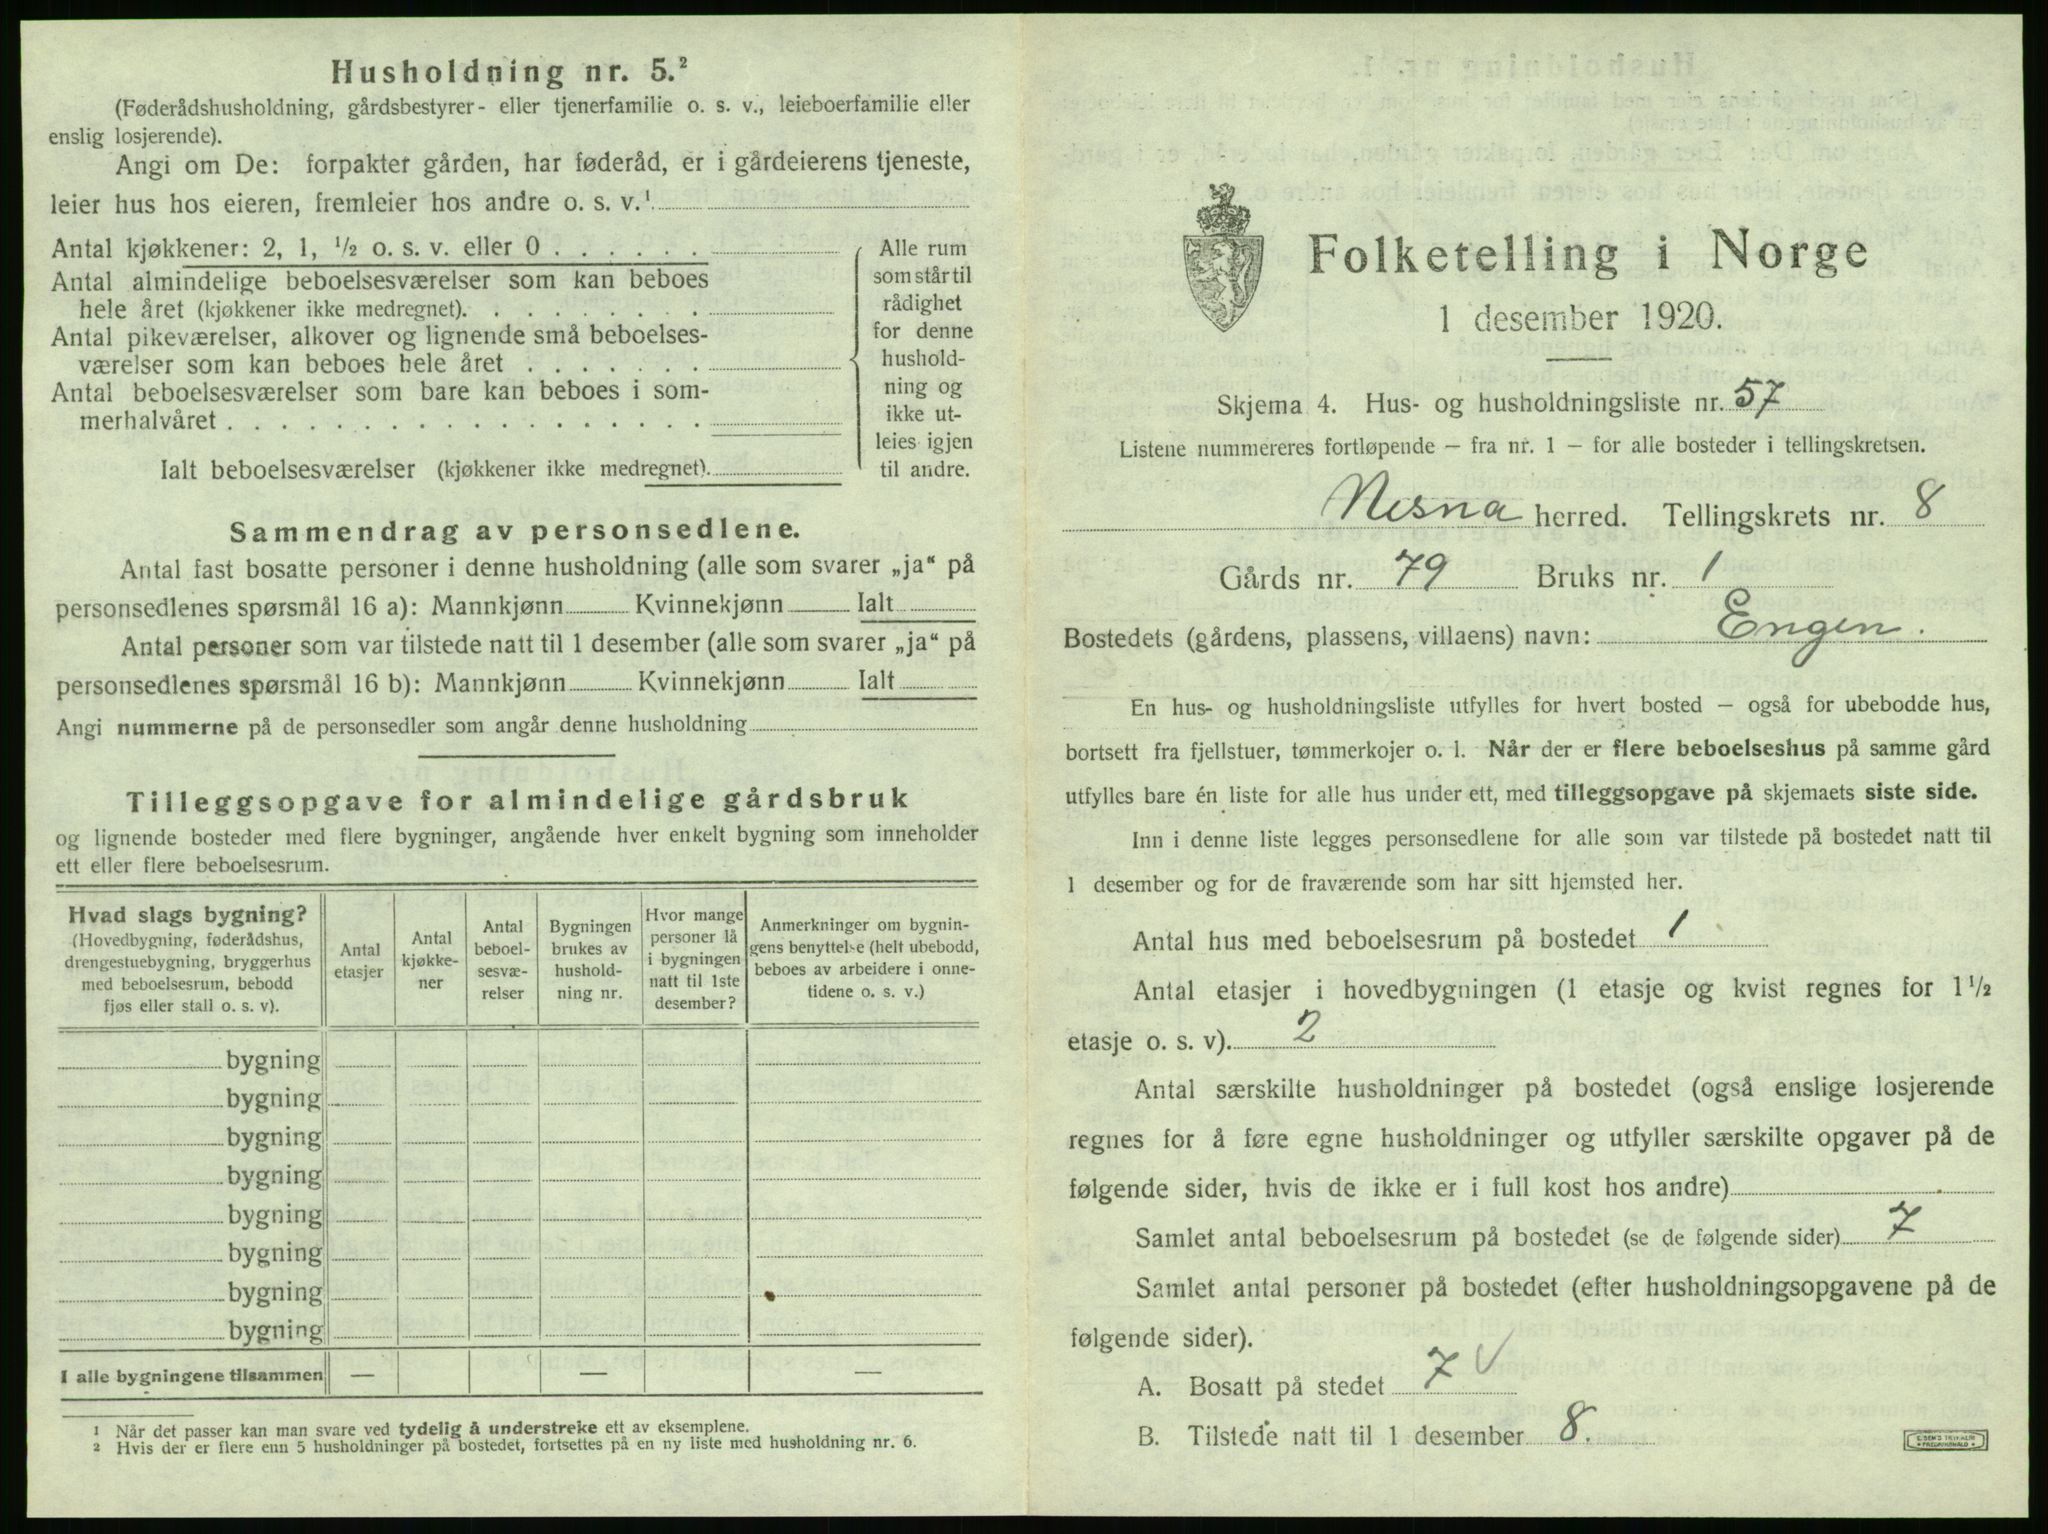 Husholdning nr. 5.²
(Føderådshusholdning, gårdsbestyrer- eller tjenerfamilie o. s. v., leieboerfamilie eller
enslig losjerende).
Angi om De: forpakter gården, har føderåd, er i gårdeierens tjeneste,
leier hus hos eieren, fremleier hos andre o. s. v.¹
Antal kjøkkener: 2, 1, ½ o. s. v. eller 0 . . . . . .
Antal almindelige beboelsesværelser som kan beboes
hele året (kjøkkener ikke medregnet). . . . . . . . .
Antal pikeværelser, alkover og lignende små beboelses-
værelser som kan beboes hele året . . . . . . .
Antal beboelsesværelser som bare kan beboes i som-
merhalvåret . . . . . . . . . . . . . . . . . .
Ialt beboelsesværelser (kjøkkener ikke medregnet).
Alle rum
som står til
rådighet
for denne
hushold-
ning og
ikke ut-
leies igjen
til andre.
Sammendrag av personsedlene.
Antal fast bosatte personer i denne husholdning (alle som svarer „ja“ på
personsedlenes spørsmål 16 a): Mannkjønn Kvinnekjønn Ialt
Antal personer som var tilstede natt til 1 desember (alle som svarer „ja“ på
personsedlenes spørsmål 16 b): Mannkjønn Kvinnekjønn Ialt
Angi nummerne på de personsedler som angår denne husholdning
Tilleggsopgave for almindelige gårdsbruk
og lignende bosteder med flere bygninger, angående hver enkelt bygning som inneholder
ett eller flere beboelsesrum.
Hvad slags bygning?
(Hovedbygning, føderådshus,
drengestuebygning, bryggerhus
med beboelsesrum, bebodd
fjøs eller stall o. s. v).
Antal
etasjer
Antal
kjøkke-
ner
Antal
beboel-
sesvæ-
relser
Bygningen
brukes av
hushold-
ning nr.
Hvor mange
personer lå
i bygningen
natt til 1ste
desember?
Anmerkninger om bygnin-
gens benyttelse (helt ubebodd,
beboes av arbeidere i onne-
tidene o. s. v.)
bygning
bygning
bygning
bygning
bygning
bygning
bygning
bygning
I alle bygningene tilsammen — — —
¹ Når det passer kan man svare ved tydelig å understreke ett av eksemplene.
² Hvis der er flere enn 5 husholdninger på bostedet, fortsettes på en ny liste med husholdning nr. 6.
Folketelling i Norge
1 desember 1920.
Skjema 4. Hus- og husholdningsliste nr. 57
Listene nummereres fortløpende — fra nr. 1 — for alle bosteder i tellingskretsen.
Nesna herred. Tellingskrets nr. 8
Gårds nr. 79 Bruks nr. 1
Bostedets (gårdens, plassens, villaens) navn: Engen.
En hus- og husholdningsliste utfylles for hvert bosted — også for ubebodde hus,
bortsett fra fjellstuer, tømmerkojer o. l. Når der er flere beboelseshus på samme gård
utfylles bare én liste for alle hus under ett, med tilleggsopgave på skjemaets siste side.
Inn i denne liste legges personsedlene for alle som var tilstede på bostedet natt til
1 desember og for de fraværende som har sitt hjemsted her.
Antal hus med beboelsesrum på bostedet 1
Antal etasjer i hovedbygningen (1 etasje og kvist regnes for 1½
etasje o. s. v). 2
Antal særskilte husholdninger på bostedet (også enslige losjerende
regnes for å føre egne husholdninger og utfyller særskilte opgaver på de
følgende sider, hvis de ikke er i full kost hos andre)
Samlet antal beboelsesrum på bostedet (se de følgende sider) 7
Samlet antal personer på bostedet (efter husholdningsopgavene på de
følgende sider).
A. Bosatt på stedet 7 V
B. Tilstede natt til 1 desember 8.